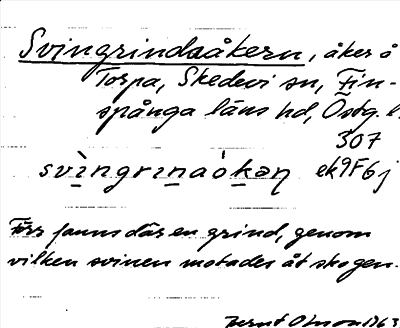 Svingrindsåkern, åker å
Torpa, Skedevi sn, Fin-
spånga läns hd, Östg. l.
307
svìngrınaókəƞ ek9F6j
Förr fanns där en grind, genom
vilken svinen motades åt skogen.
Bernt Olsson 1963